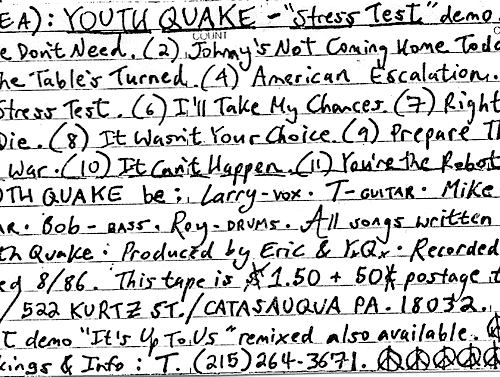 EA): YOUTH QUAKE - "Stress Test" demo
COUNT
e Don't Need. (2) Johnny's Not Coming Home Toda
he Table's Turned. (4) American Escalation.
Stress Test. (6) I'll Take My Chances. (7) Right
Die. (8) It Wasn't Your Choice. (9) Prepare Th
War. (10) It Can't Happen. (11) You're the Robot
TH QUAKE be: Larry-vox. T-GUITAR. Mike
AR. Bob-BASS. Roy-DRUMS. All songs written
th Quake. Produced by Eric & Y.Q. Recorded
ed 8/86. This tape is $1.50 + 50¢ postage t
/522 KURTZ ST./CATASAUQUA PA. 18032.
T demo "It's Up To Us" remixed also available.
kings & Info: T. (215)264-3671.